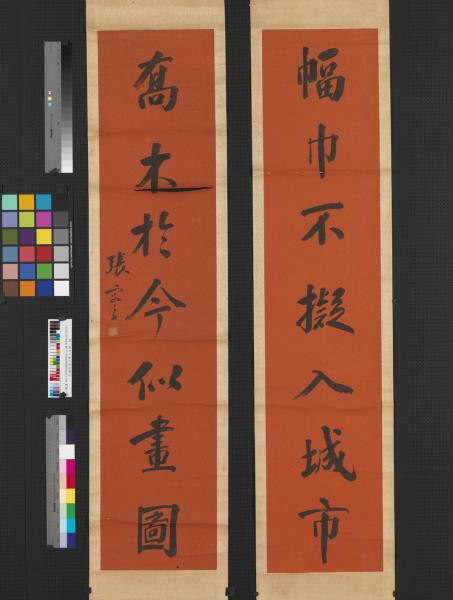 幅巾不擬入城市
喬木於今似畫圖
張宗